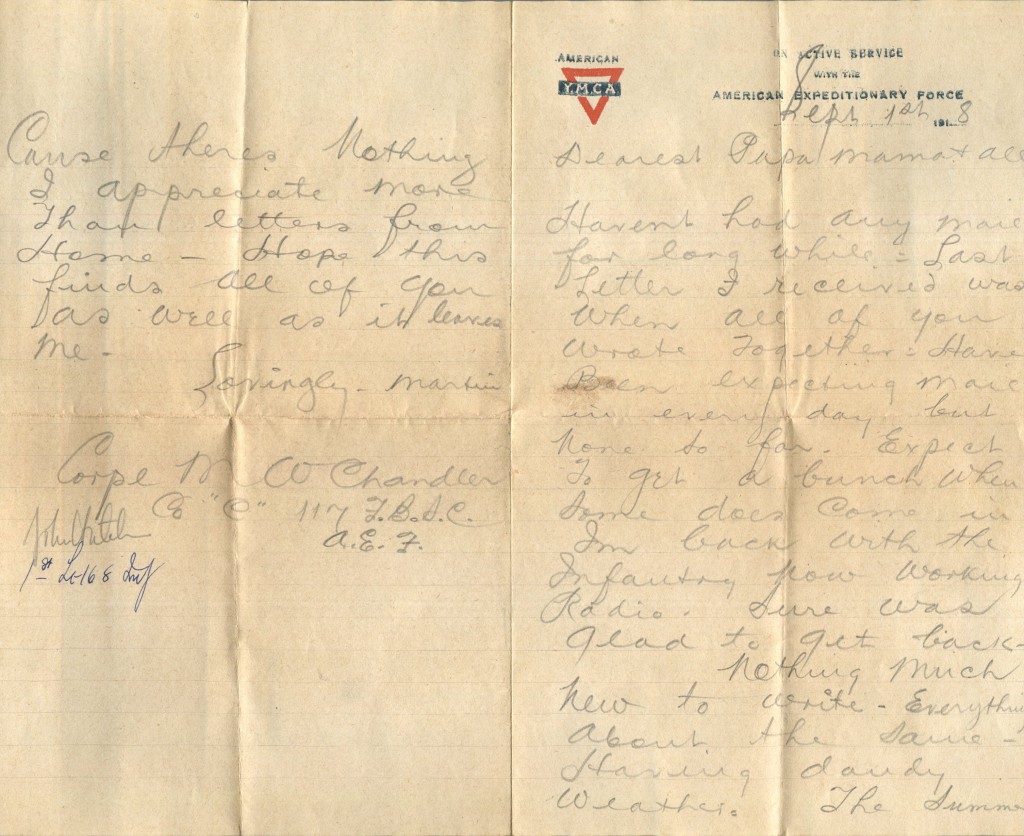 Cause theres Nothing
I appreciate more
Than letters from
Home – Hope this
finds all of you
as well as it leaves
me –
Lovingly – Martin
Corpl M W Chandler
Co "C" 117 F.B.S.C.
A. E. F.
John
1st Lt 168 Inf
AMERICAN
Y.M.C.A
ON ACTIVE SERVICE
WITH THE
AMERICAN EXPEDITIONARY FORCE
Sept 1st 1918
Dearest Papa mama + all
Havent had any mail
for long while = Last
Letter I received was
When all of you
wrote Together = Have
Been expecting mail
in every day but
None so far. Expect
To get a bunch When
Some does Come in
Im back with the
Infantry Now Working
Radio. Sure was
glad to get back –
Nothing Much
New to write – Everythin
About the same –
Having dandy
Weather. The Summe